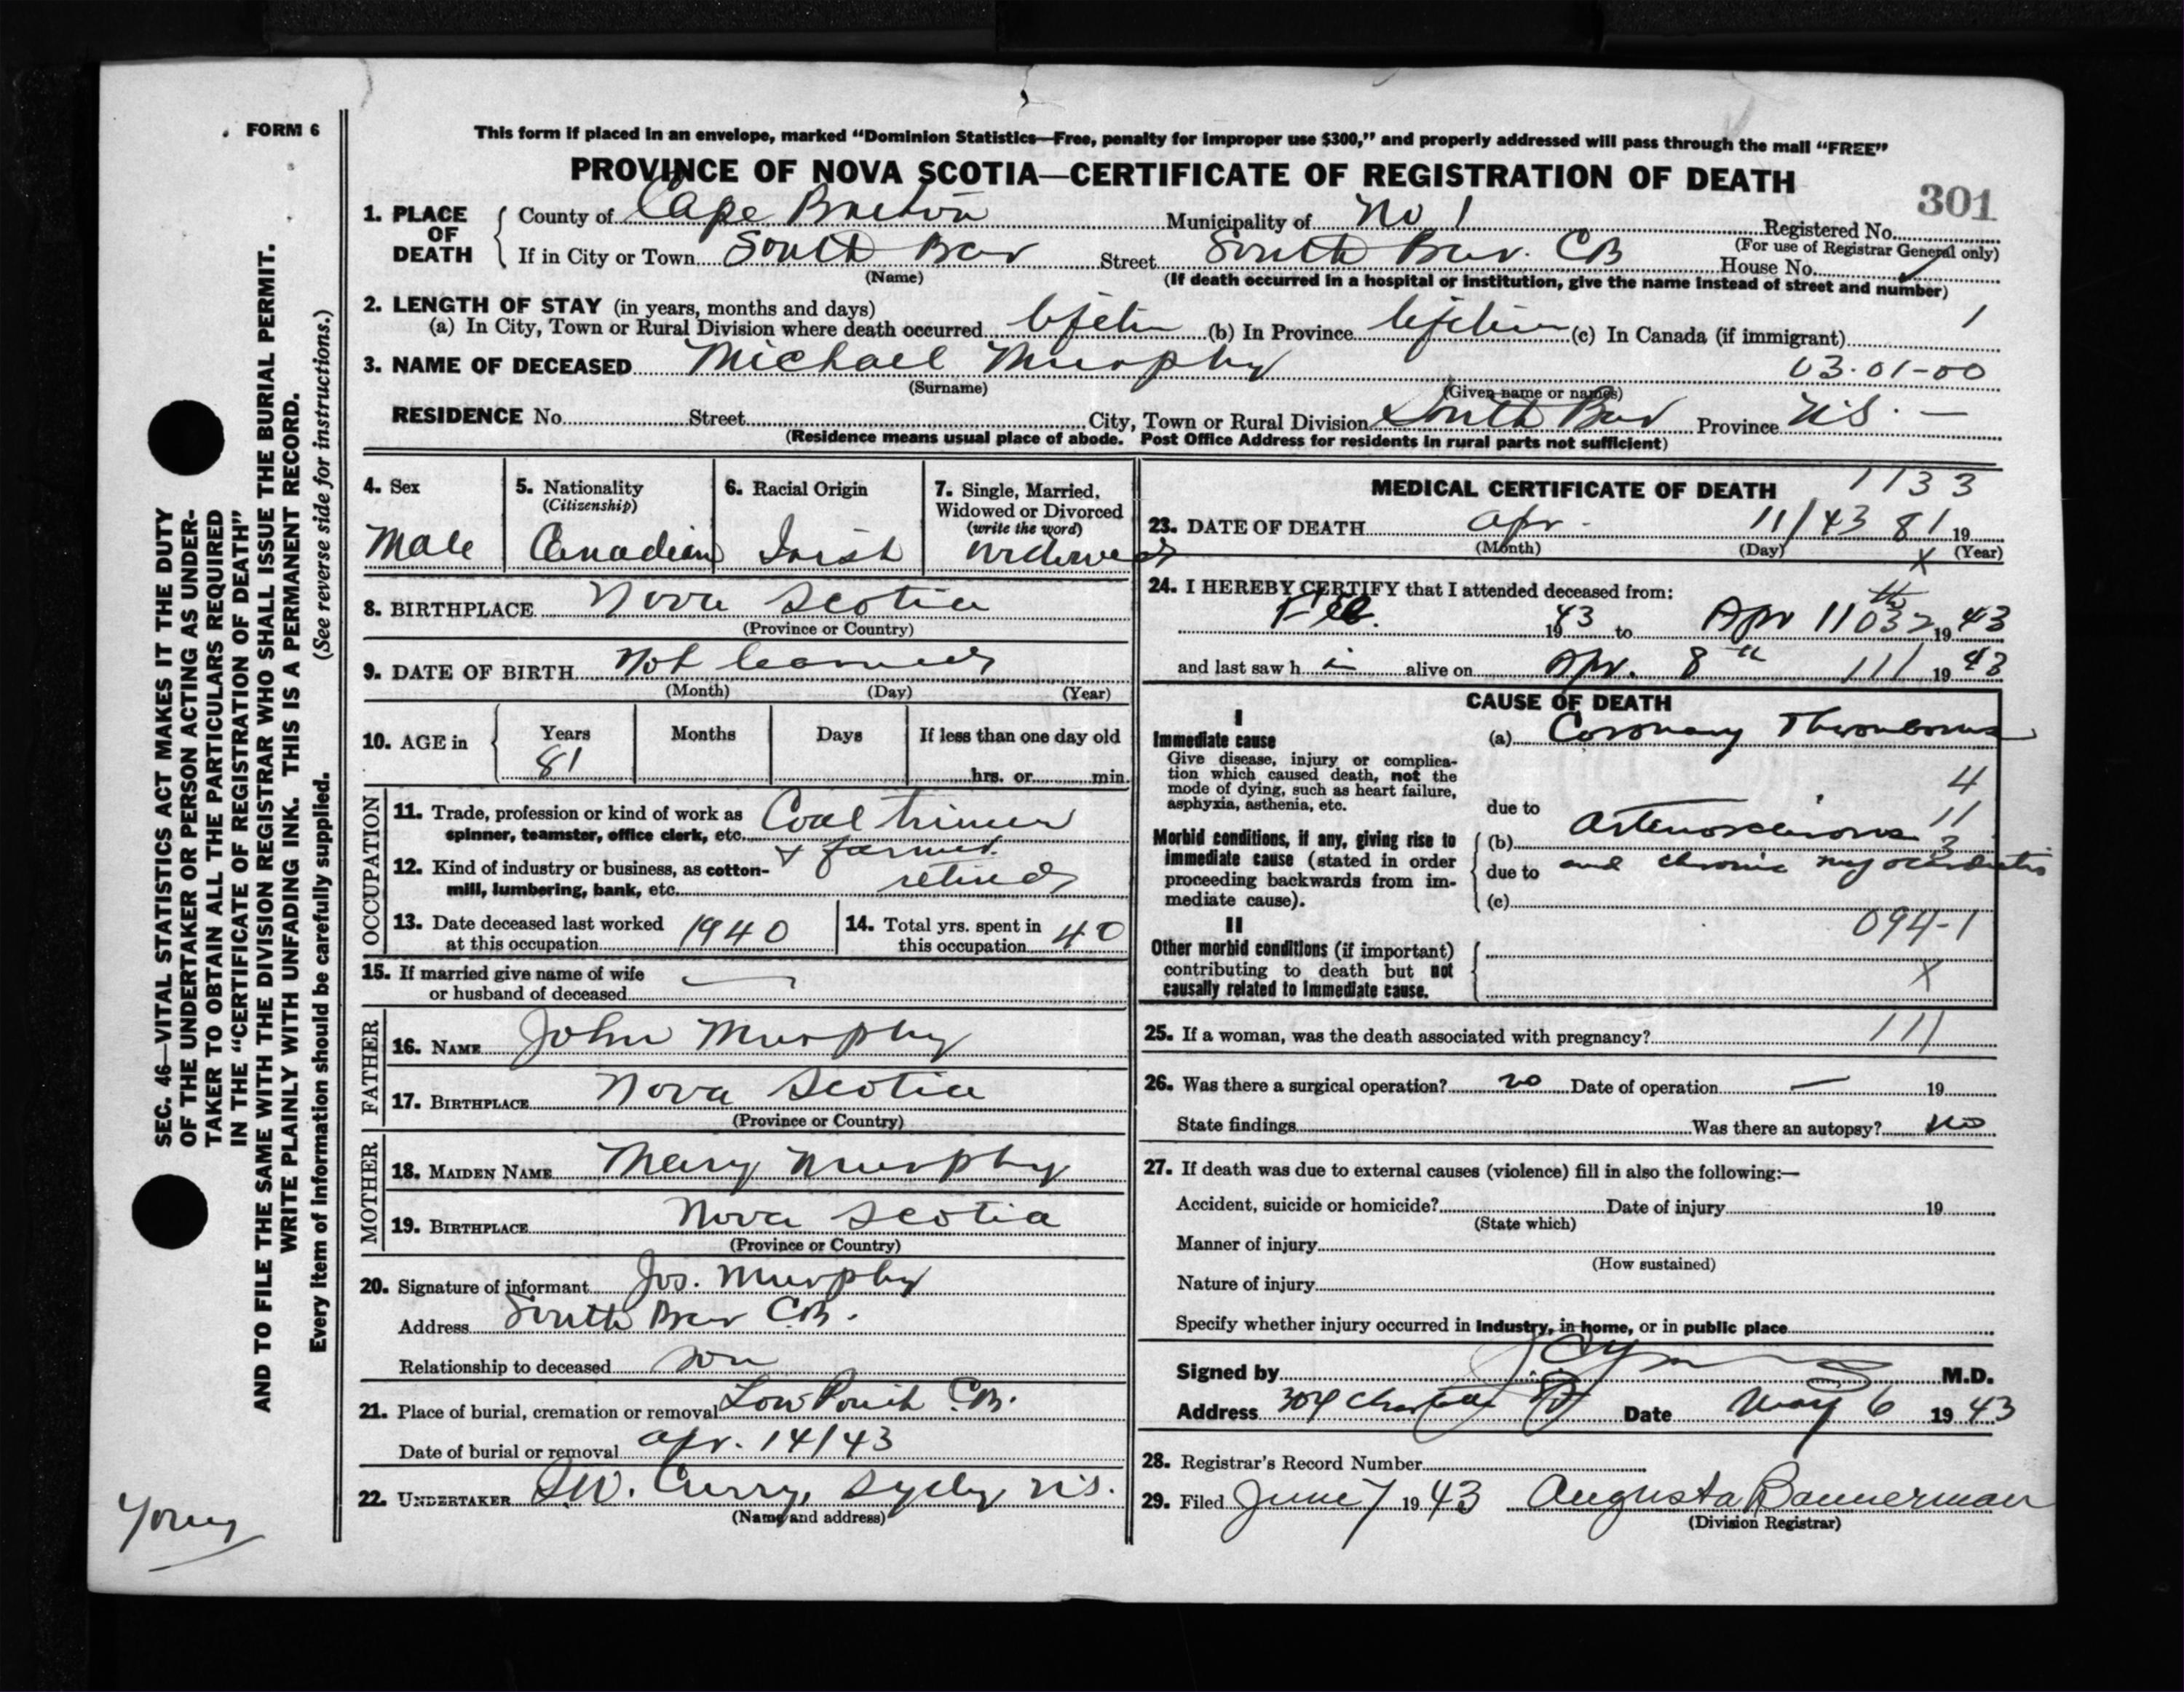 FORM 6
This form if placed in an envelope, marked "Dominion Statistics—Free, penalty for improper use $300," and properly addressed will pass through the mail "FREE"
PROVINCE OF NOVA SCOTIA—CERTIFICATE OF REGISTRATION OF DEATH
301
1. PLACE OF DEATH
County of Cape Breton Municipality of No 1 Registered No.
(For use of Registrar General only)
If in City or Town South Bar Street South Bar. CB House No.
(Name) (If death occurred in a hospital or institution, give the name instead of street and number)
2. LENGTH OF STAY (in years, months and days) 1
(a) In City, Town or Rural Division where death occurred lifetime (b) In Province lifetime (c) In Canada (if immigrant)
3. NAME OF DECEASED Michael Murphy 03-01-00
(Surname) (Given name or names)
RESIDENCE No. Street City, Town or Rural Division South Bar Province N.S. —
(Residence means usual place of abode. Post Office Address for residents in rural parts not sufficient)
4. Sex
Male
5. Nationality
(Citizenship)
Canadian
6. Racial Origin
Irish
7. Single, Married,
Widowed or Divorced
(write the word)
Widowed
8. BIRTHPLACE Nova Scotia
(Province or Country)
9. DATE OF BIRTH Not learned
(Month) (Day) (Year)
10. AGE in
Years Months Days If less than one day old
81 hrs. or min.
OCCUPATION
11. Trade, profession or kind of work as
spinner, teamster, office clerk, etc. Coal trimer
& farmer
12. Kind of industry or business, as cotton-
mill, lumbering, bank, etc. retired
13. Date deceased last worked
at this occupation 1940
14. Total yrs. spent in
this occupation 40
15. If married give name of wife
or husband of deceased —
FATHER
16. NAME John Murphy
17. BIRTHPLACE Nova Scotia
(Province or Country)
MOTHER
18. MAIDEN NAME Mary Murphy
19. BIRTHPLACE Nova Scotia
(Province or Country)
20. Signature of informant Jos. Murphy
Address South Bar C.B.
Relationship to deceased son
21. Place of burial, cremation or removal Low Point C.B.
Date of burial or removal Apr. 14/43
22. UNDERTAKER Curry, Sydney N.S.
(Name and address)
MEDICAL CERTIFICATE OF DEATH 1133
23. DATE OF DEATH Apr. 11/43 81 19
(Month) (Day) X (Year)
24. I HEREBY CERTIFY that I attended deceased from:
Feb. 1943 to Apr 11th 032 1943
and last saw h i alive on Apr. 8th 111 1943
CAUSE OF DEATH
I
Immediate cause
Give disease, injury or complica-
tion which caused death, not the
mode of dying, such as heart failure,
asphyxia, asthenia, etc.
(a) Coronary Thrombosis
4
due to
11
Morbid conditions, if any, giving rise to
immediate cause (stated in order
proceeding backwards from im-
mediate cause).
(b) Arteriosclerosis
3
due to and chronic myocarditis
(c)
094-1
II
Other morbid conditions (if important)
contributing to death but not
causally related to immediate cause.
X
25. If a woman, was the death associated with pregnancy? 111
26. Was there a surgical operation? no Date of operation — 19
State findings Was there an autopsy? no
27. If death was due to external causes (violence) fill in also the following:—
Accident, suicide or homicide? Date of injury 19
(State which)
Manner of injury
(How sustained)
Nature of injury
Specify whether injury occurred in Industry, in home, or in public place
Signed by M.D.
Address 304 Charlotte St Date May 6 1943
28. Registrar's Record Number
29. Filed June 7 1943 Augusta Bannerman
(Division Registrar)
SEC. 46—VITAL STATISTICS ACT MAKES IT THE DUTY
OF THE UNDERTAKER OR PERSON ACTING AS UNDER-
TAKER TO OBTAIN ALL THE PARTICULARS REQUIRED
IN THE "CERTIFICATE OF REGISTRATION OF DEATH"
AND TO FILE THE SAME WITH THE DIVISION REGISTRAR WHO SHALL ISSUE THE BURIAL PERMIT.
WRITE PLAINLY WITH UNFADING INK. THIS IS A PERMANENT RECORD.
Every item of information should be carefully supplied. (See reverse side for instructions.)